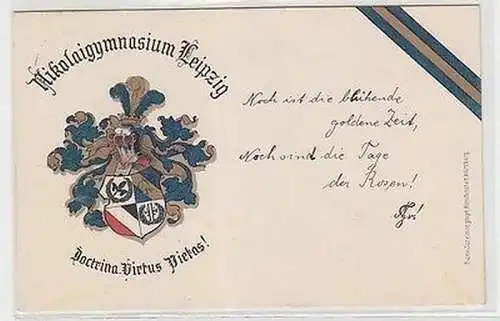 Nikolaigymnasium Leipzig
Noch ist die blühende
goldene Zeit,
Noch sind die Tage
der Rosen!
Doctrina. Virtus Pietas!